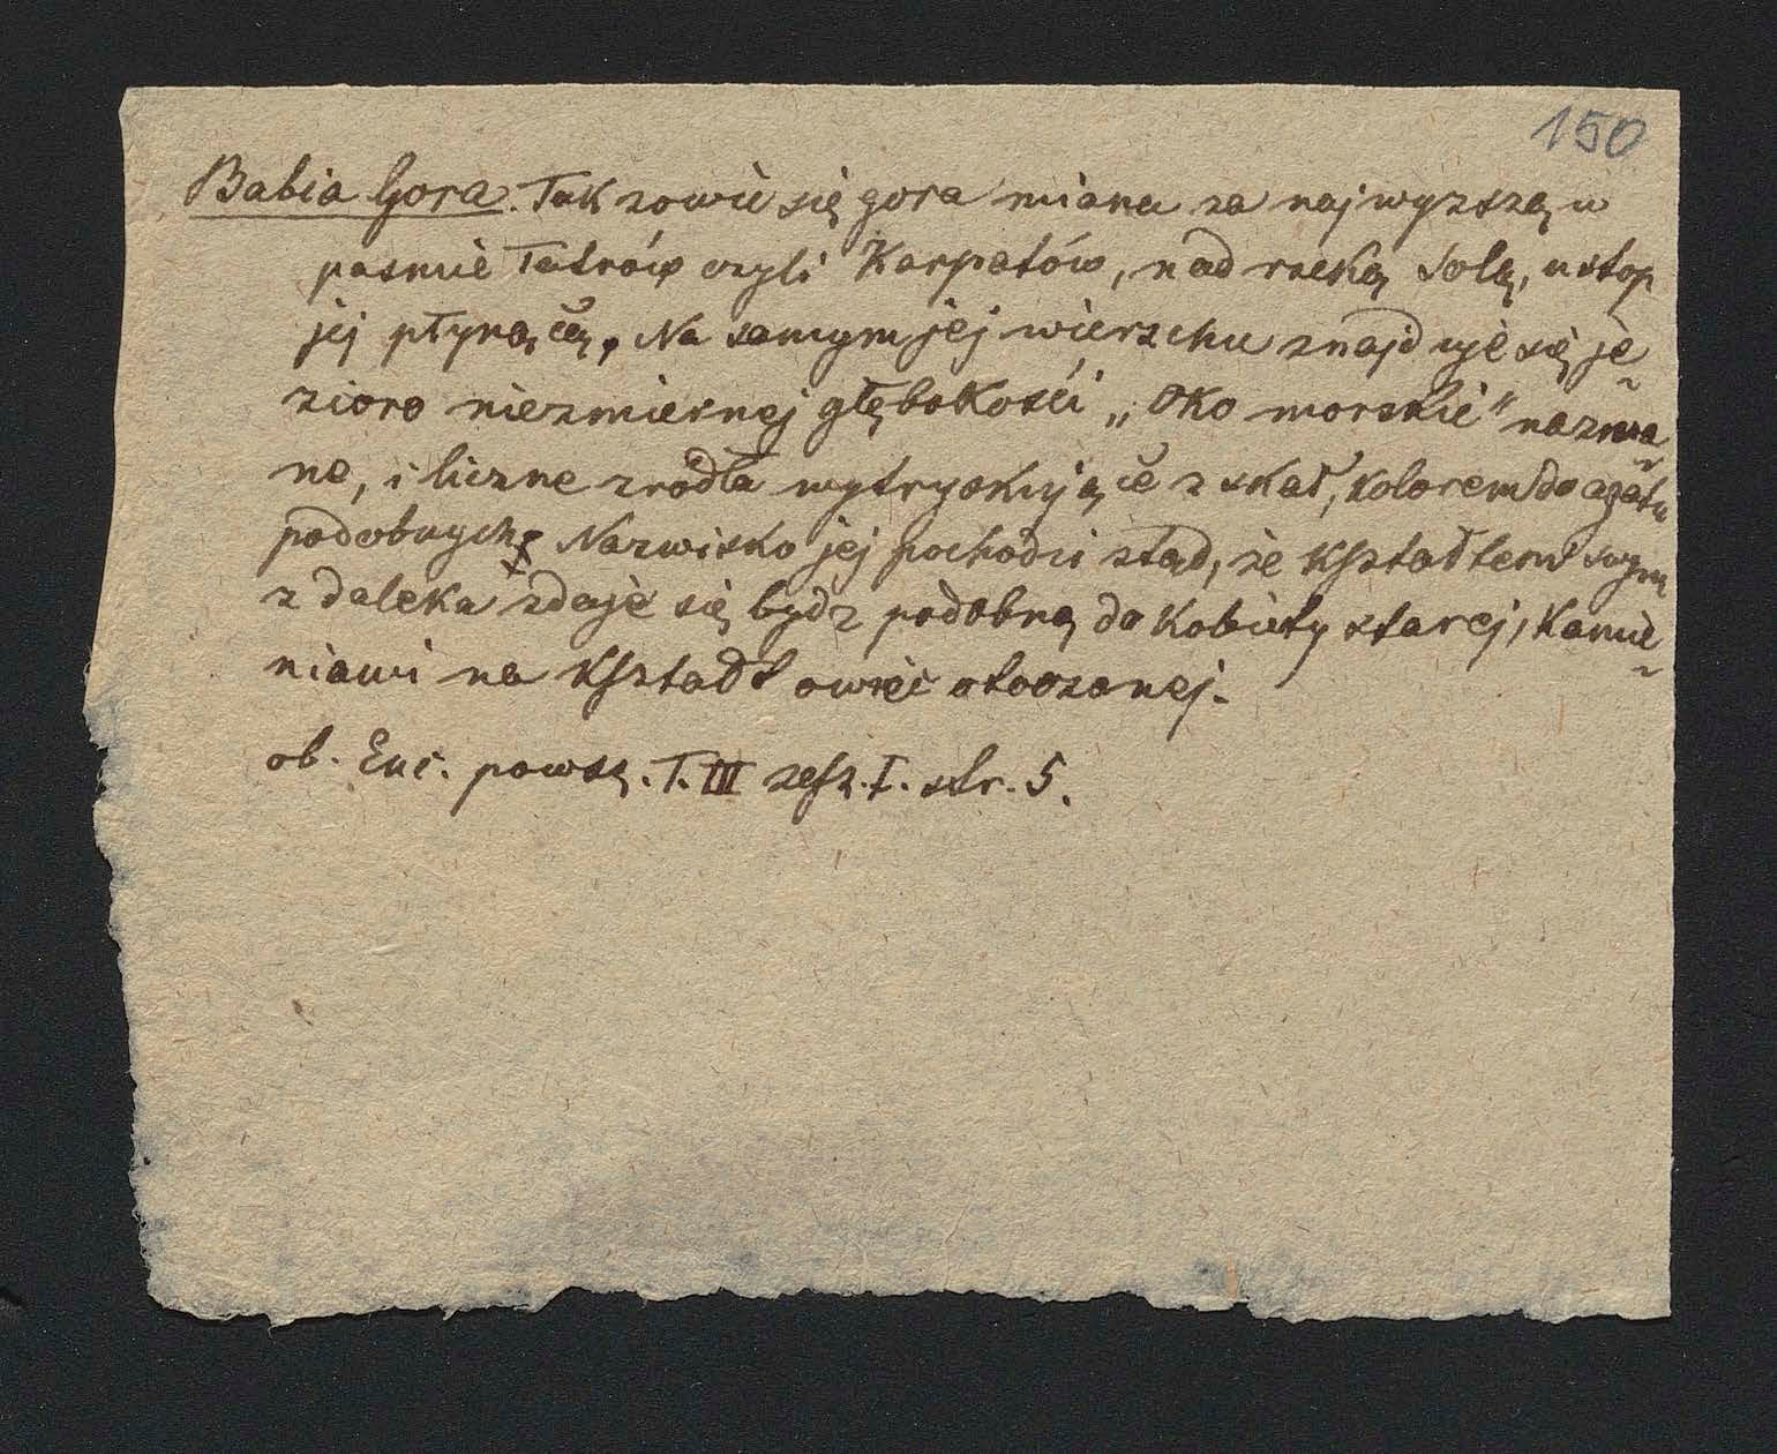 150
Babia Gora. Tak zowie się gora miana za najwyzszą w
pasmie Tatrów czyli Karpatów, nad rzeką Solą, u stop
jej płynącą. Na samym jej wierzchu znajduje się je-
zioro niezmiernej głębokości „Oko morskie" nazwa-
ne, i liczne zrodła wytryskujące z skał, kolorem do agatu
podobnych. Nazwisko jej pochodzi ztąd, że kształtem swym
z daleka zdaje się bydz podobną do kobiety starej, kamie-
niami na kształt owiec otoczonej.
ob. Enc. powsz. T. III zesz. I. str. 5.